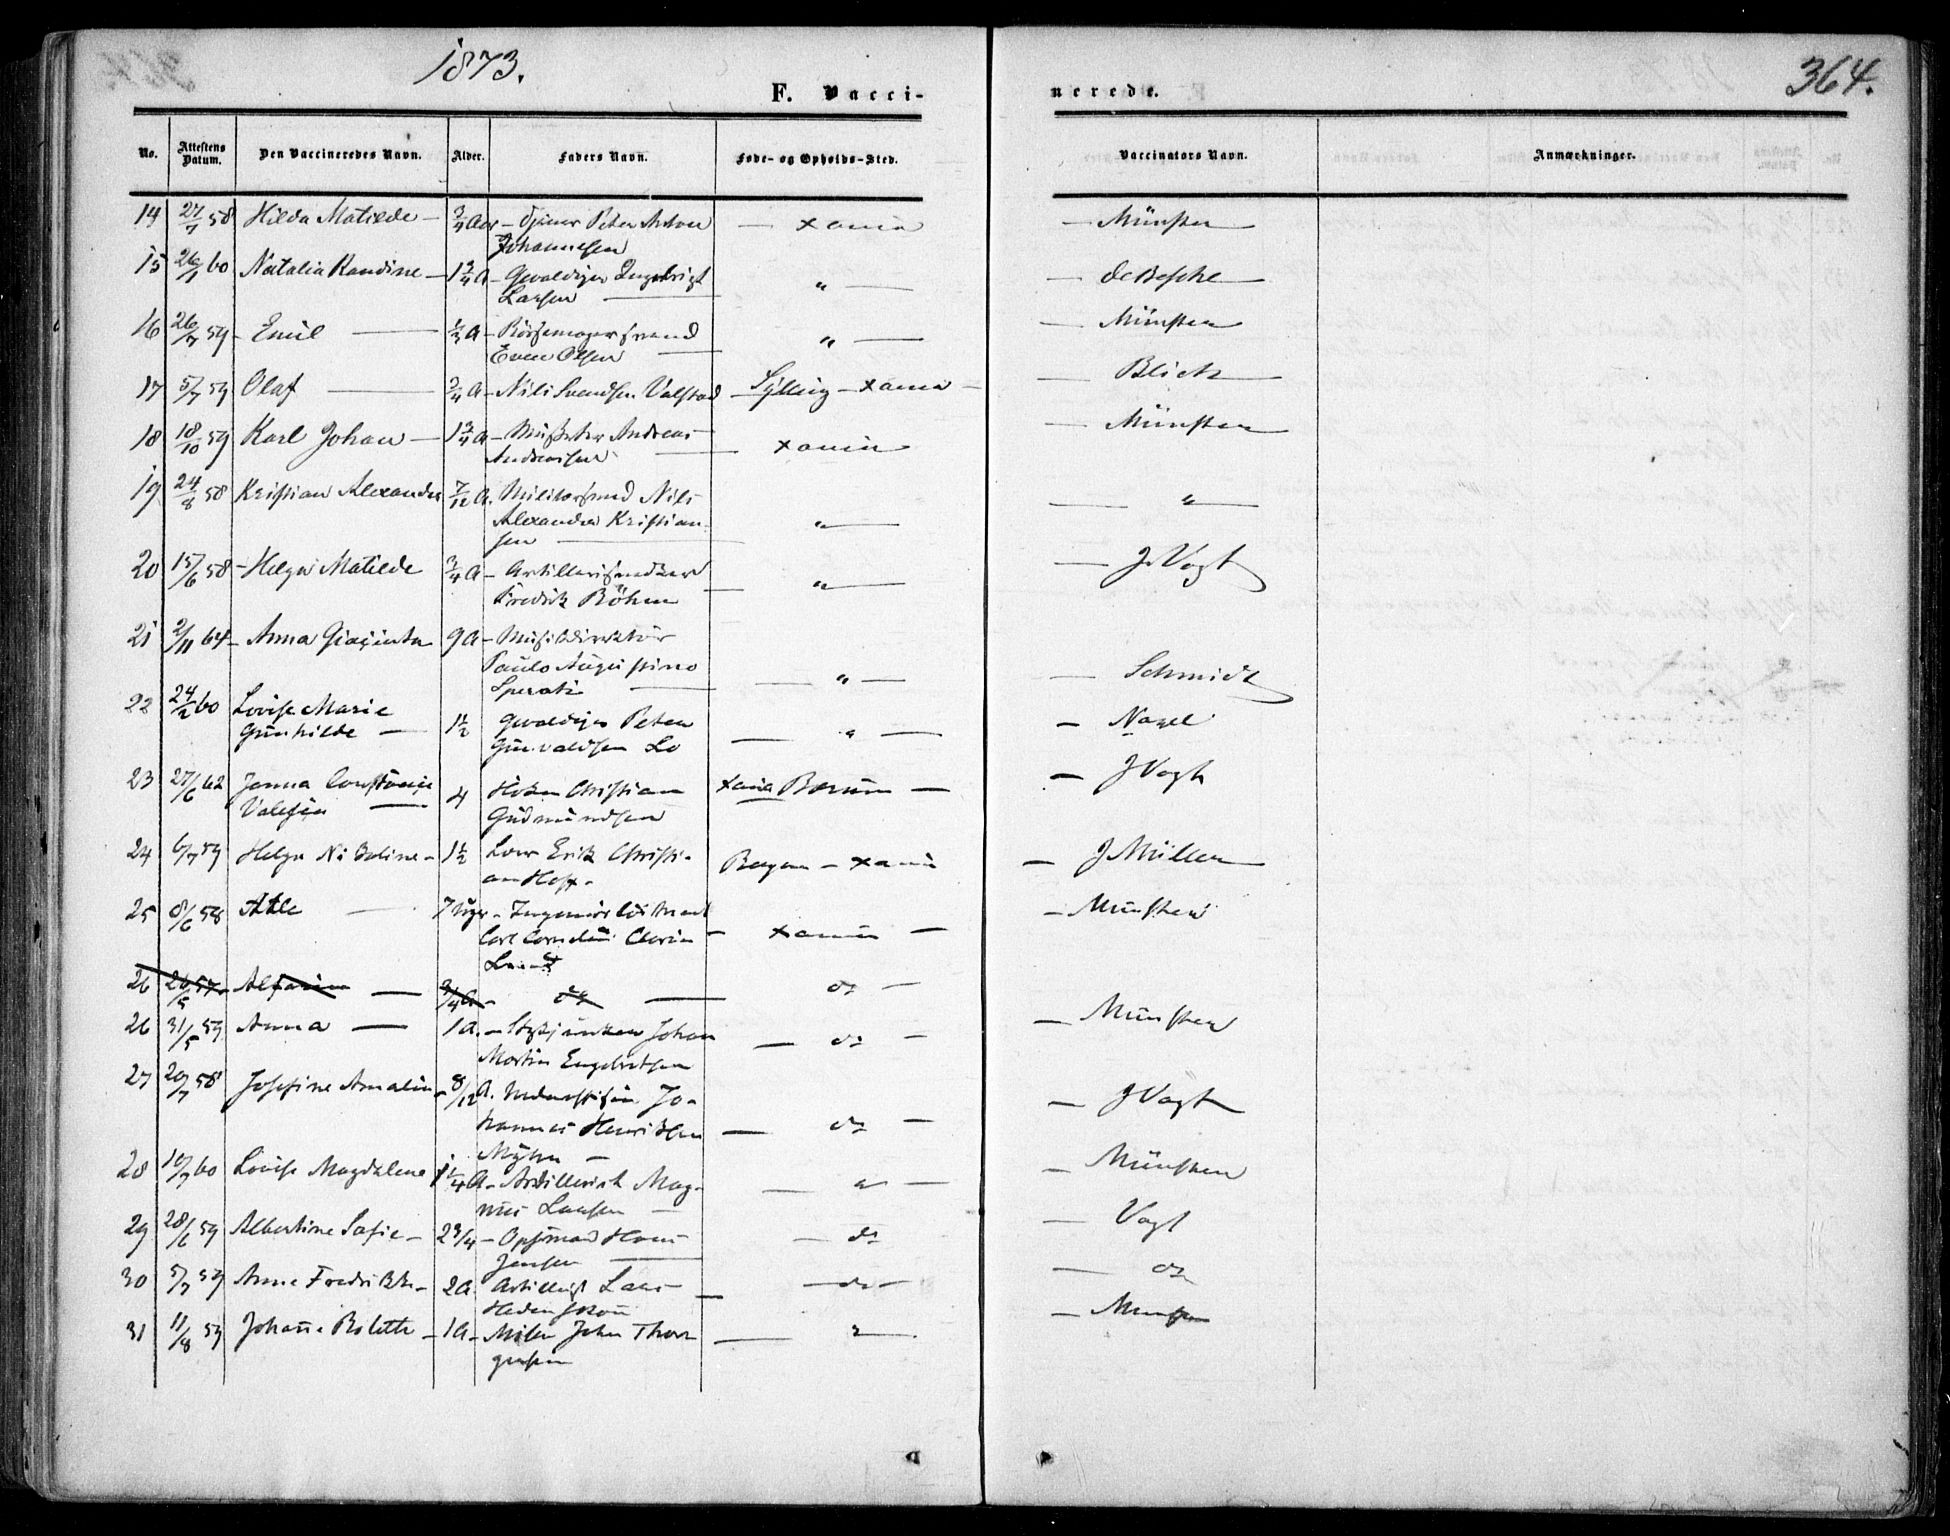 1873.
364.
F. Vacci-
nerede.
No.
Attestens Datum.
Den Vaccineredes Navn.
Alder.
Faders Navn.
Føde- og Opholds-Sted.
Vaccinators Navn.
Anmærkninger.
14 27/7 58 Hilda Matilde — 3/4 Aar — Peter Anton — xania — Münster
Johannesen
15 26/1 60 Natalia Randine — 1 3/4 A — Gevaldiger Engebrigt „ — — deBesche
Larsen —
16 26/7 59 - Emil — 1/3 A — Bössemagersvend „ — — Münster
Even Olsen —
17 5/7 59 Olaf — 3/4 A — Nils Svendsen Valstad — Sylling — xania — — Blich
18 18/10 59 Karl Johan — 1 3/4 A — Andreas — xania — Münster
Andreasen
19 24/8 58 Kristian Alexander 7/12 A. Nils „ — — „ —
Alexander Kristian-
sen —
20 15/6 58 - Helga Matilde 3/4 A — „ — — J Vogt
Fredrik Böhm
21 2/11 64 - Anna Giacinta 9 A — Musikdirektör
Paulo Augustino — „ — — Schmidt
Sperati —
22 24/2 60 Lovise Marie
Gunhilde — 1 1/2 Gevaldiger Peter — „ — — Nagel
Gunvaldsen Lo
23 27/6 62 Janna Constance 4 Christian xania Bærum — — J Vogt
Valesia — Gudmundsen
24 6/7 59 Helga Nikoline — 1 1/2 Erik Christi- Bergen — xania — J Müller
an Host -
25 8/6 58 Atle — 7 Uger - xania — — Münster
Carl Cornelius
26 26/5 57 — 3/4 A — do — do —
26 31/5 59 Anna — 1 A. — Johan — do — — Münster
Martin Engebretsen
27 20/7 58 Josefine Amalia — 8/12 A. Underofficier Jo-
hannes Henriksen — do — — J Vogt
28 10/7 60 Lovise Magdalene 1 1/4 A — Artillerist Mag- — — Münster
nus Larsen —
29 28/6 59 Albertine Sofie — 2 3/4 — Opsynsmand Hans — do — Vogt
Jensen —
30 5/7 59 Anne Fredrikke — 2 A. Lars — do — — do
31 11/8 59 Johanne Bolette — 1 A — John Thor- — Münster
gersen